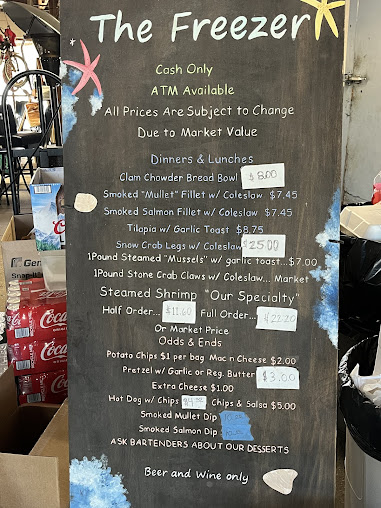 The Freezer
Cash Only
ATM Available
All Prices Are Subject to Change
Due to Market Value
Dinners & Lunches
Clam Chowder Bread Bowl $8.00
Smoked "Mullet" Fillet w/ Coleslaw $7.45
Smoked Salmon Fillet w/ Coleslaw $7.45
Tilapia w/ Garlic Toast $8.75
Snow Crab Legs w/ Coleslaw $25.00
1Pound Steamed "Mussels" w/ garlic toast...$7.00
1Pound Stone Crab Claws w/ Coleslaw... Market
Steamed Shrimp "Our Specialty"
Half Order... $11.60 Full Order... $22.20
Or Market Price
Odds & Ends
Potato Chips $1 per bag Mac n Cheese $2.00
Pretzel w/ Garlic or Reg. Butter $3.00
Extra Cheese $1.00
Hot Dog w/ Chips Chips & Salsa $5.00
Smoked Mullet Dip
Smoked Salmon Dip
ASK BARTENDERS ABOUT OUR DESSERTS
Beer and Wine only
Coca
Coca
Coca